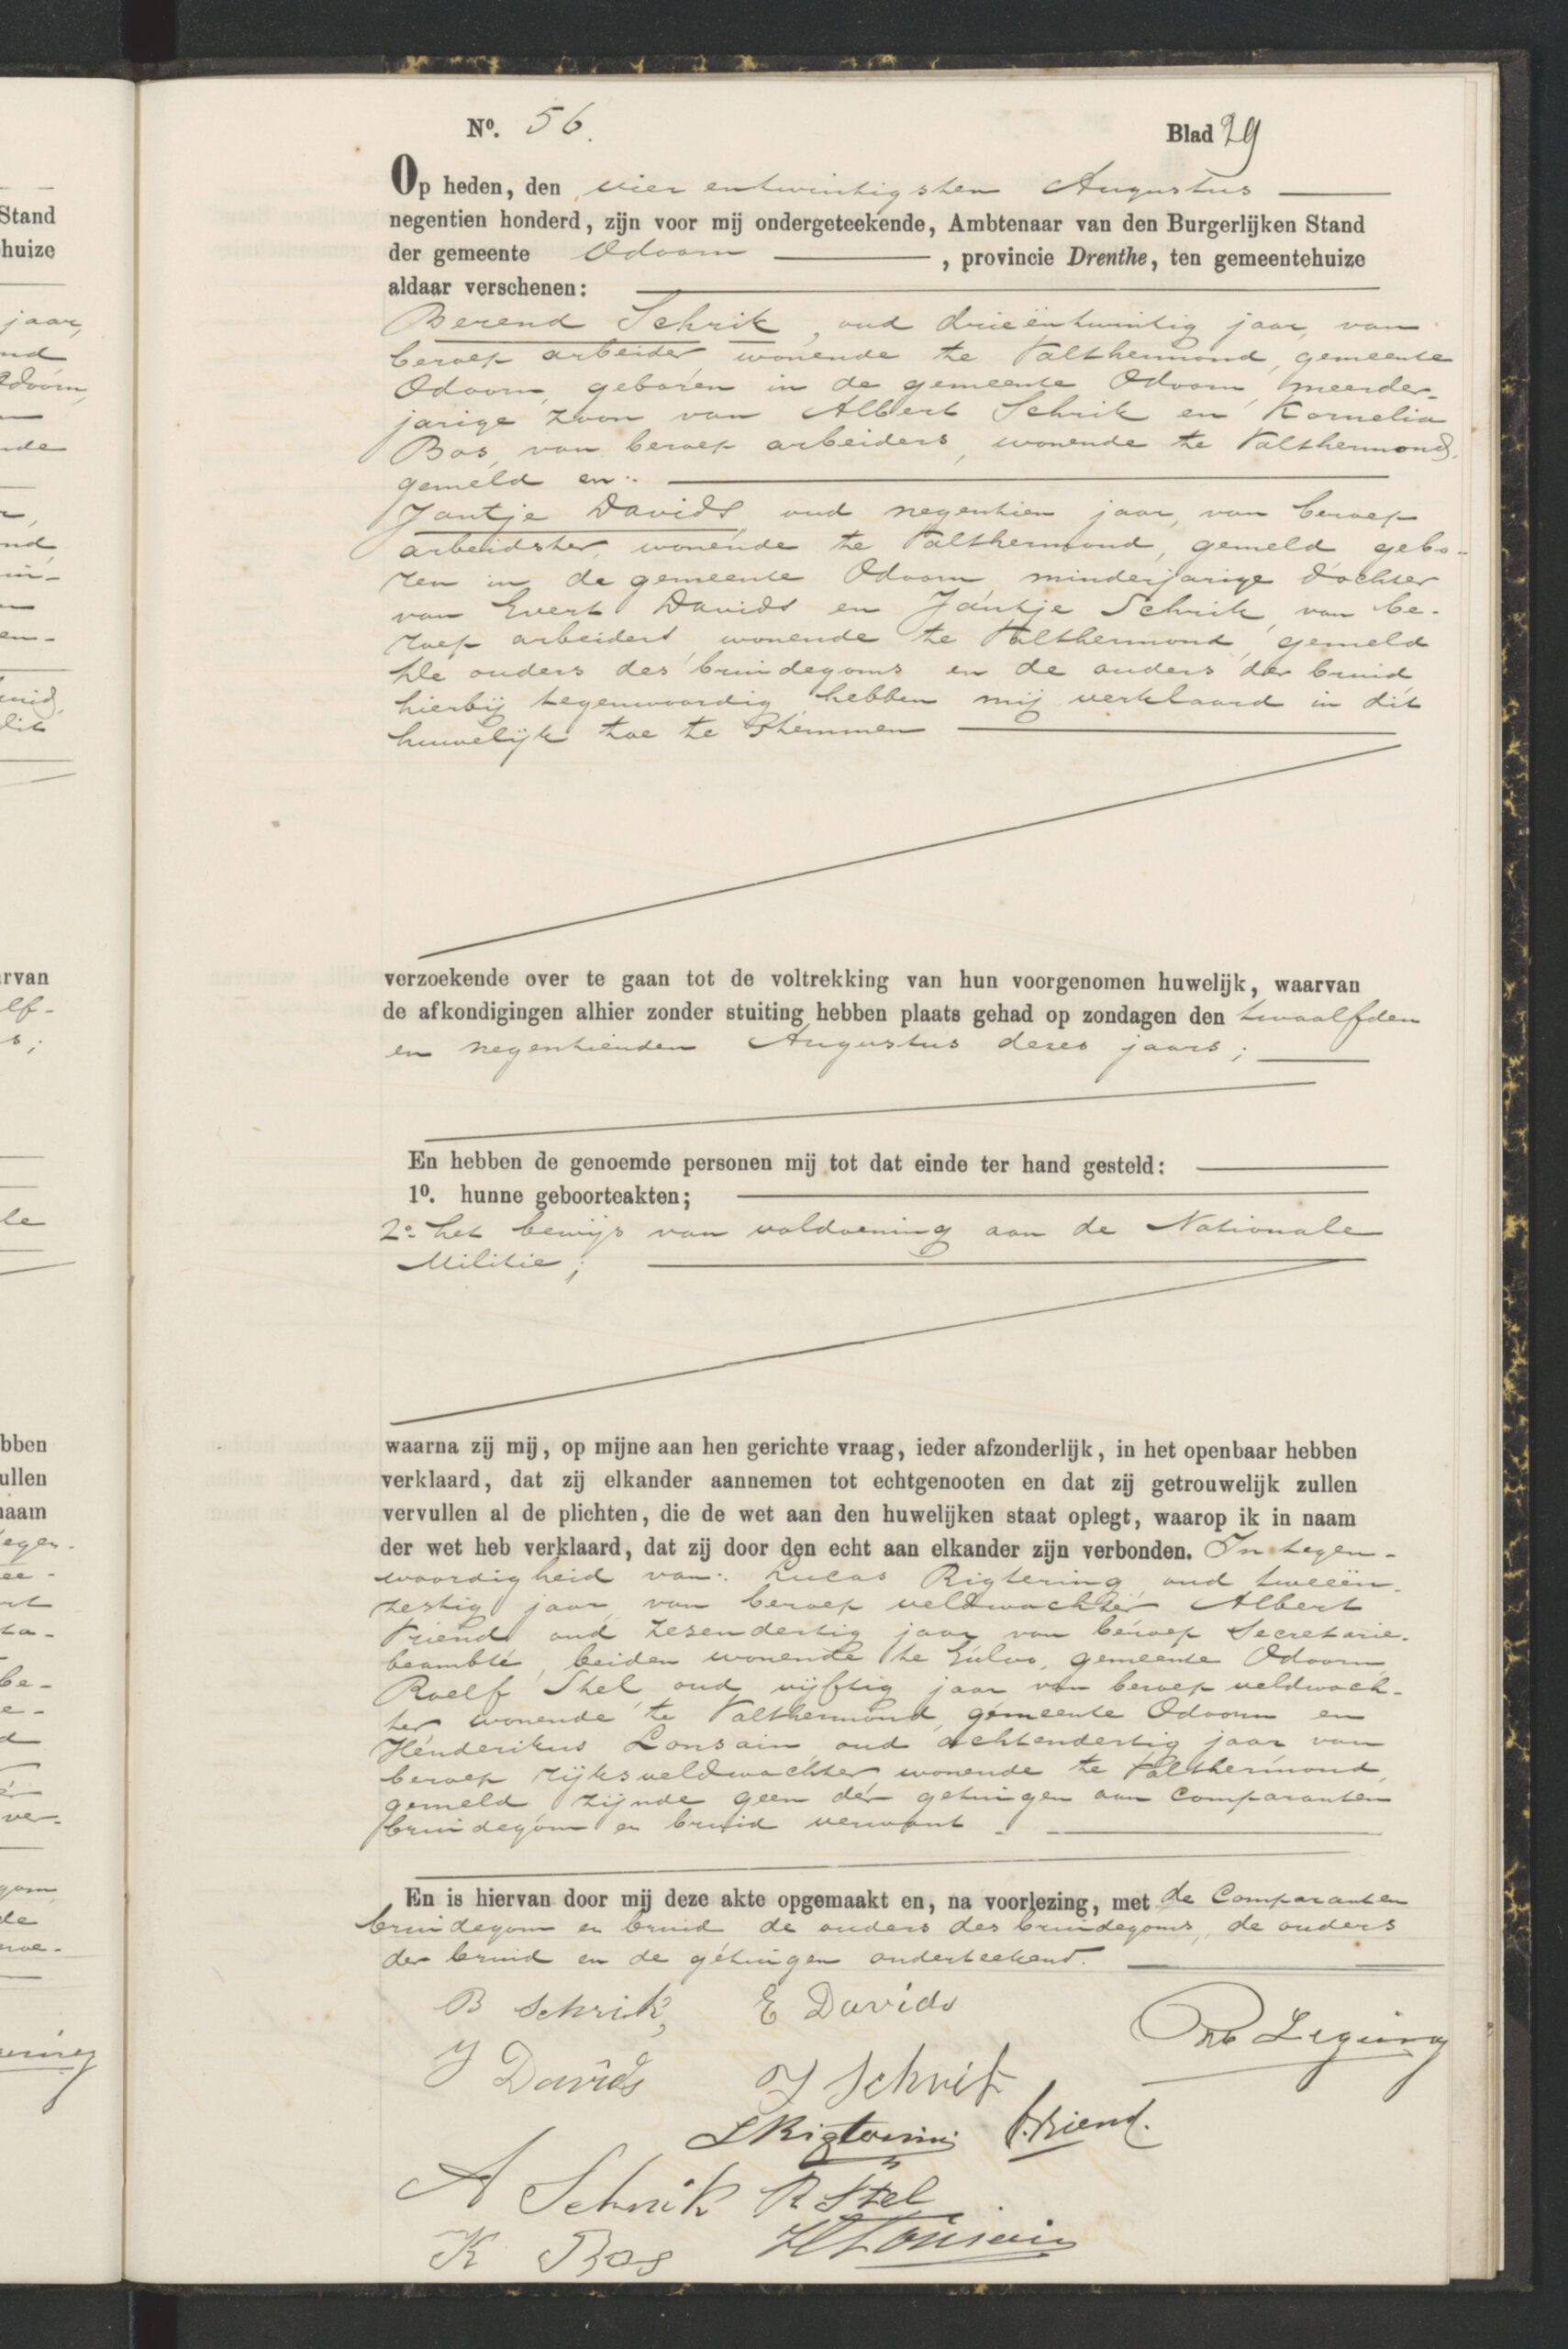 Nº. 56.
Blad 29
Op heden, den vier entwintigsten Augustus
negentien honderd, zijn voor mij ondergeteekende, Ambtenaar van den Burgerlijken Stand
der gemeente Odoorn, provincie Drenthe, ten gemeentehuize
aldaar verschenen:
Berend Schrik, oud drieëntwintig jaar, van
beroep arbeider wonende te Valthermond, gemeente
Odoorn, geboren in de gemeente Odoorn, meerder-
jarige zoon van Albert Schrik en Kornelia
Bos, van beroep arbeiders, wonende te Valthermond,
gemeld en:
Jantje Davids, oud negentien jaar, van beroep
arbeidster, wonende te Valthermond, gemeld gebo-
ren in de gemeente Odoorn, minderjarige dochter
van Evert Davids en Jantje Schrik, van be-
roep arbeiders, wonende te Valthermond, gemeld
De ouders des bruidegoms en de ouders der bruid
hierbij tegenwoordig hebben mij verklaard in dit
huwelijk toe te stemmen
verzoekende over te gaan tot de voltrekking van hun voorgenomen huwelijk, waarvan
de afkondigingen alhier zonder stuiting hebben plaats gehad op zondagen den twaalfden
en negentienden Augustus dezes jaars;
En hebben de genoemde personen mij tot dat einde ter hand gesteld:
1º. hunne geboorteakten;
2º het bewijs van voldoening aan de Nationale
Militie;
waarna zij mij, op mijne aan hen gerichte vraag, ieder afzonderlijk, in het openbaar hebben
verklaard, dat zij elkander aannemen tot echtgenooten en dat zij getrouwelijk zullen
vervullen al de plichten, die de wet aan den huwelijken staat oplegt, waarop ik in naam
der wet heb verklaard, dat zij door den echt aan elkander zijn verbonden. In tegen-
woordigheid van: Lucas Rigtering, oud tweeën-
zestig jaar, van beroep veldwachter Albert
Vriend oud zesendertig jaar van beroep Secretarie-
beambte, beiden wonende te Exloo, gemeente Odoorn,
Roelf Stel, oud vijftig jaar van beroep veldwach-
ter wonende te Valthermond, gemeente Odoorn en
Henderikus Lonsain, oud achtendertig jaar van
beroep rijksveldwachter wonende te Valthermond,
gemeld zijnde geen der getuigen aan Comparanten
bruidegom en bruid verwant.
En is hiervan door mij deze akte opgemaakt en, na voorlezing, met de Comparanten
bruidegom en bruid de ouders des bruidegoms, de ouders
der bruid en de getuigen onderteekend.
B Schrik,
E Davids
J Davids
J Schrik
L Rigtering
A. Vriend.
A Schrik
R Stel
K Bos
H Lonsain